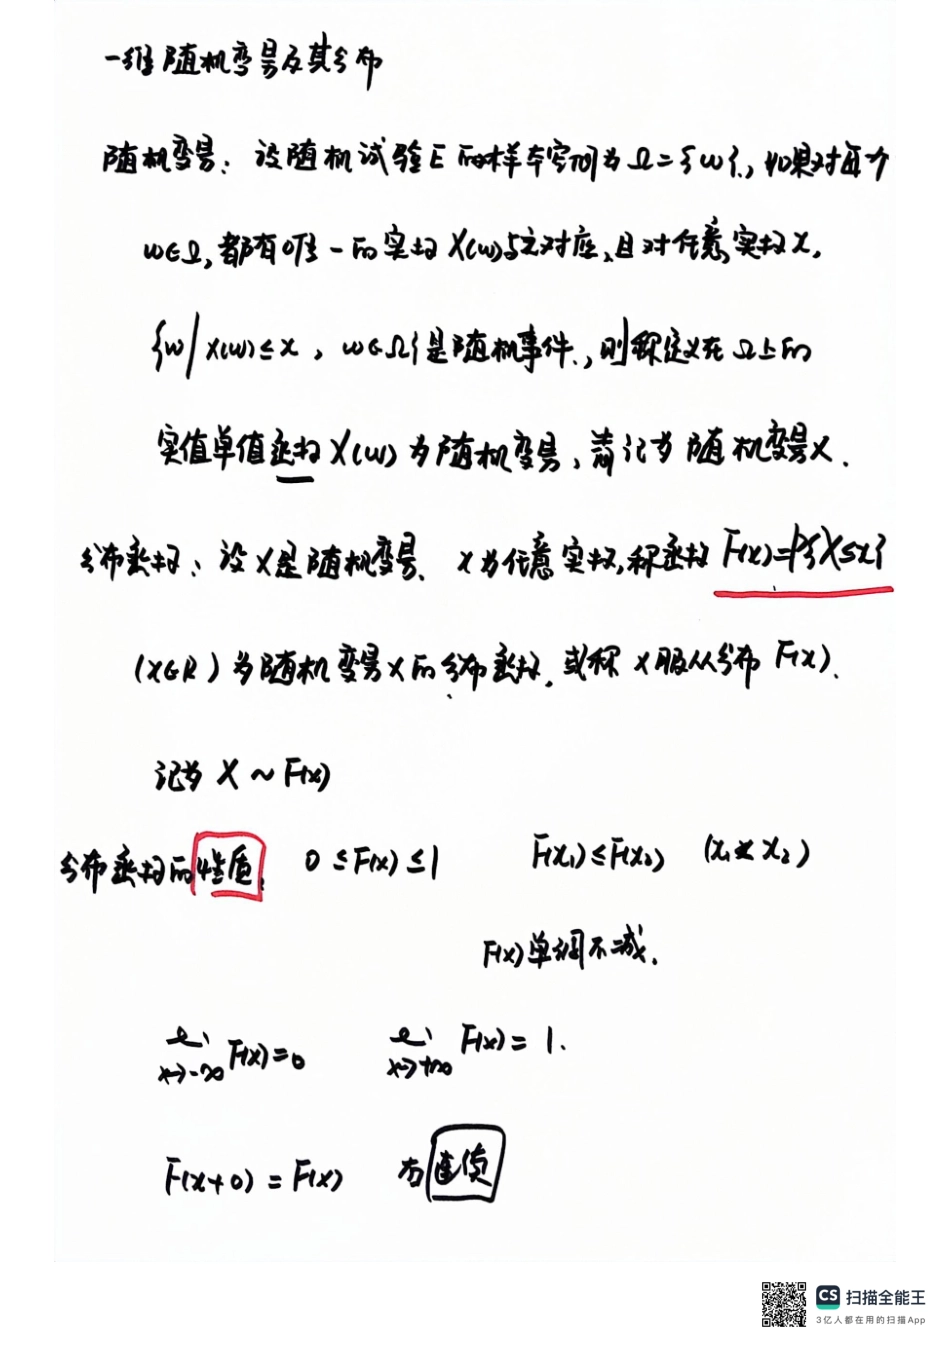 一维随机变量及其分布
随机变量: 设随机试验E的样本空间为Ω={ω}, 如果对每个
ω∈Ω, 都有唯一的实数X(ω)与之对应, 且对任意实数x,
{ω|X(ω)≤x, ω∈Ω}是随机事件, 则称定义在Ω上的
实值单值函数X(ω)为随机变量, 简记为随机变量X.
分布函数: 设X是随机变量, x为任意实数, 称函数F(x)=P{X≤x}
(x∈R)为随机变量X的分布函数, 或称X服从分布F(x).
记为 X~F(x)
分布函数的性质: 0≤F(x)≤1 F(x₁)≤F(x₂) (x₁<x₂)
F(x)单调不减.
lim x→-∞ F(x)=0 lim x→+∞ F(x)=1.
F(x+0)=F(x) 右连续
CS 扫描全能王
3亿人都在用的扫描App